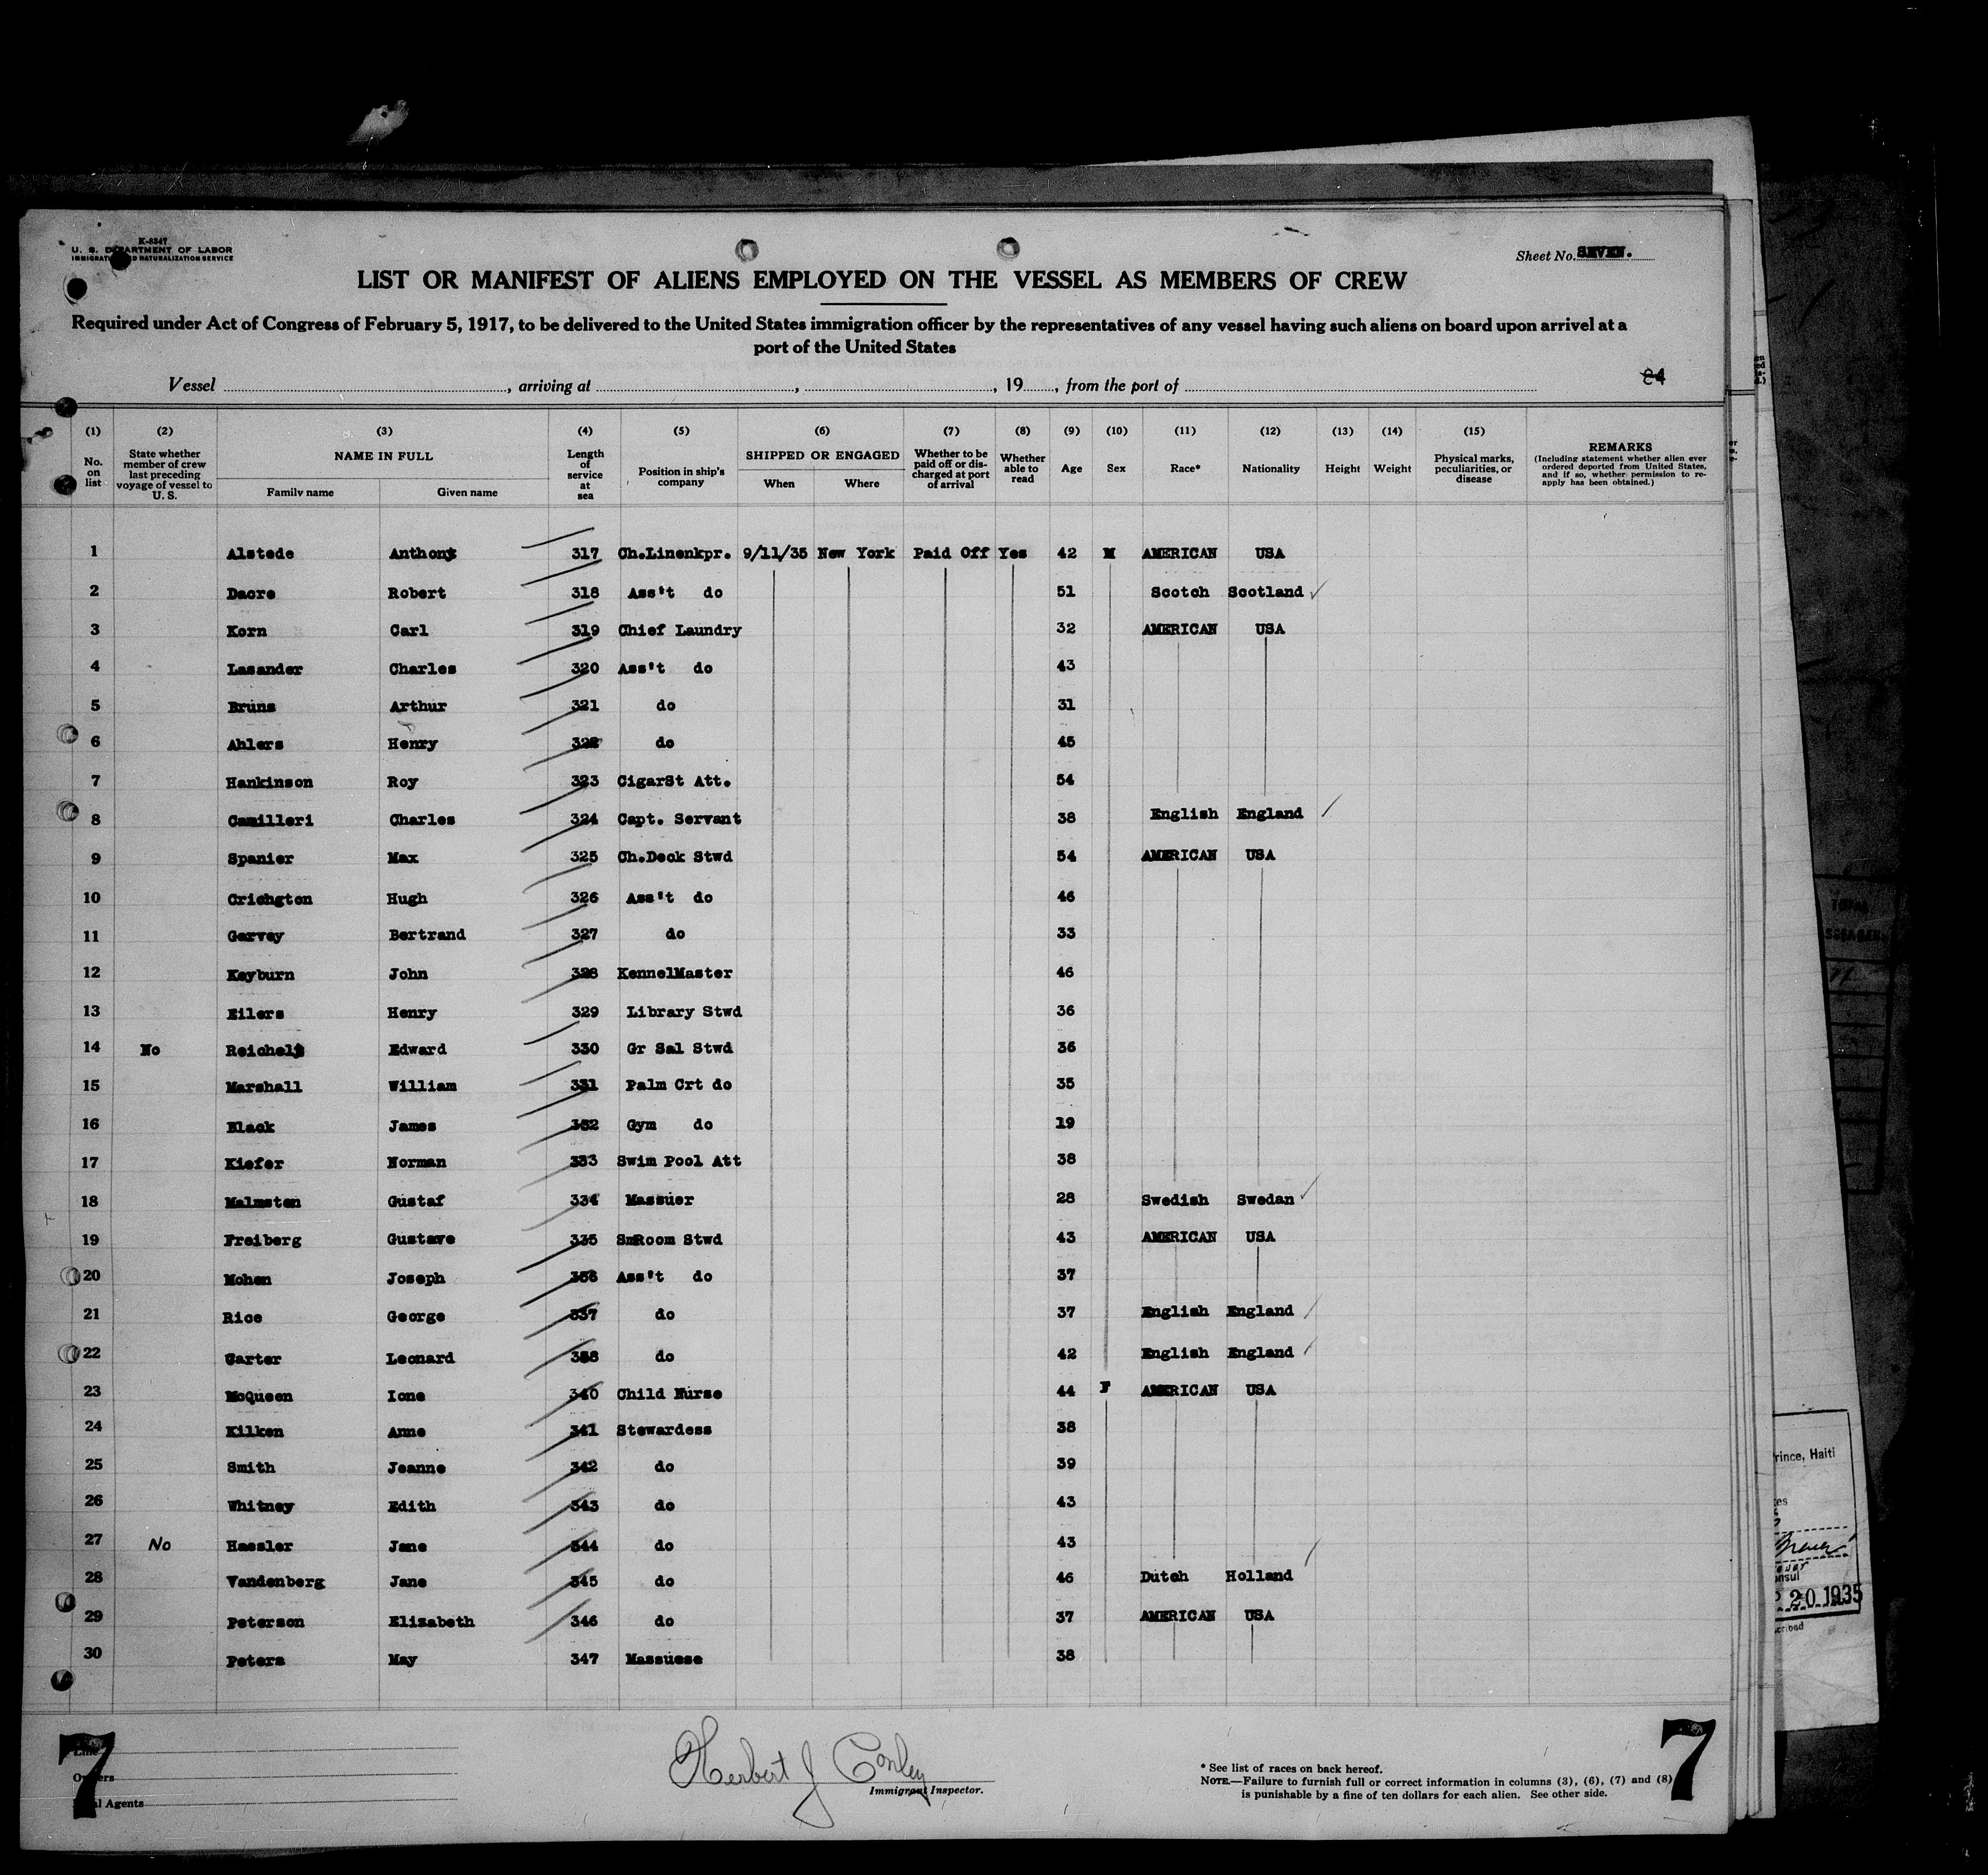 K-8347
U. S. DEPARTMENT OF LABOR
IMMIGRATION AND NATURALIZATION SERVICE
Sheet No. SEVEN.
LIST OR MANIFEST OF ALIENS EMPLOYED ON THE VESSEL AS MEMBERS OF CREW
Required under Act of Congress of February 5, 1917, to be delivered to the United States immigration officer by the representatives of any vessel having such aliens on board upon arrivel at a
port of the United States
Vessel , arriving at , , 19 , from the port of
84
(1) No. on list
(2) State whether member of crew last preceding voyage of vessel to U. S.
(3) NAME IN FULL Family name Given name
(4) Length of service at sea
(5) Position in ship's company
(6) SHIPPED OR ENGAGED When Where
(7) Whether to be paid off or discharged at port of arrival
(8) Whether able to read
(9) Age
(10) Sex
(11) Race*
(12) Nationality
(13) Height
(14) Weight
(15) Physical marks, peculiarities, or disease
REMARKS (Including statement whether alien ever ordered deported from United States, and if so, whether permission to re-apply has been obtained.)
1 Alstede Anthony 317 Ch.Linenkpr. 9/11/35 New York Paid Off Yes 42 M AMERICAN USA
2 Dacre Robert 318 Ass't do 51 Scotch Scotland ✓
3 Korn Carl 319 Chief Laundry 32 AMERICAN USA
4 Lasander Charles 320 Ass't do 43
5 Bruns Arthur 321 do 31
6 Ahlers Henry 322 do 45
7 Hankinson Roy 323 CigarSt Att. 54
8 Camilleri Charles 324 Capt. Servant 38 English England
9 Spanier Max 325 Ch.Deck Stwd 54 AMERICAN USA
10 Crichgton Hugh 326 Ass't do 46
11 Garvey Bertrand 327 do 33
12 Keyburn John 328 KennelMaster 46
13 Eilers Henry 329 Library Stwd 36
14 No Reichelt Edward 330 Gr Sal Stwd 36
15 Marshall William 331 Palm Crt do 35
16 Black James 332 Gym do 19
17 Kiefer Norman 333 Swim Pool Att 38
18 Malmsten Gustaf 334 Massuer 28 Swedish Swedan ✓
19 Freiberg Gustave 335 SmRoom Stwd 43 AMERICAN USA
20 Mohen Joseph 336 Ass't do 37
21 Rice George 337 do 37 English England
22 Carter Leonard 338 do 42 English England
23 McQueen Ione 340 Child Nurse 44 F AMERICAN USA
24 Kilken Anne 341 Stewardess 38
25 Smith Jeanne 342 do 39
26 Whitney Edith 343 do 43
27 No Haesler Jane 344 do 43
28 Vandenberg Jane 345 do 46 Dutch Holland
29 Peterson Elizabeth 346 do 37 AMERICAN USA
30 Peters May 347 Massuese 38
Prince, Haiti
20 1935
7
Line
Owners
Local Agents
Herbert J Conley
Immigrant Inspector.
* See list of races on back hereof.
NOTE.—Failure to furnish full or correct information in columns (3), (6), (7) and (8)
is punishable by a fine of ten dollars for each alien. See other side.
7